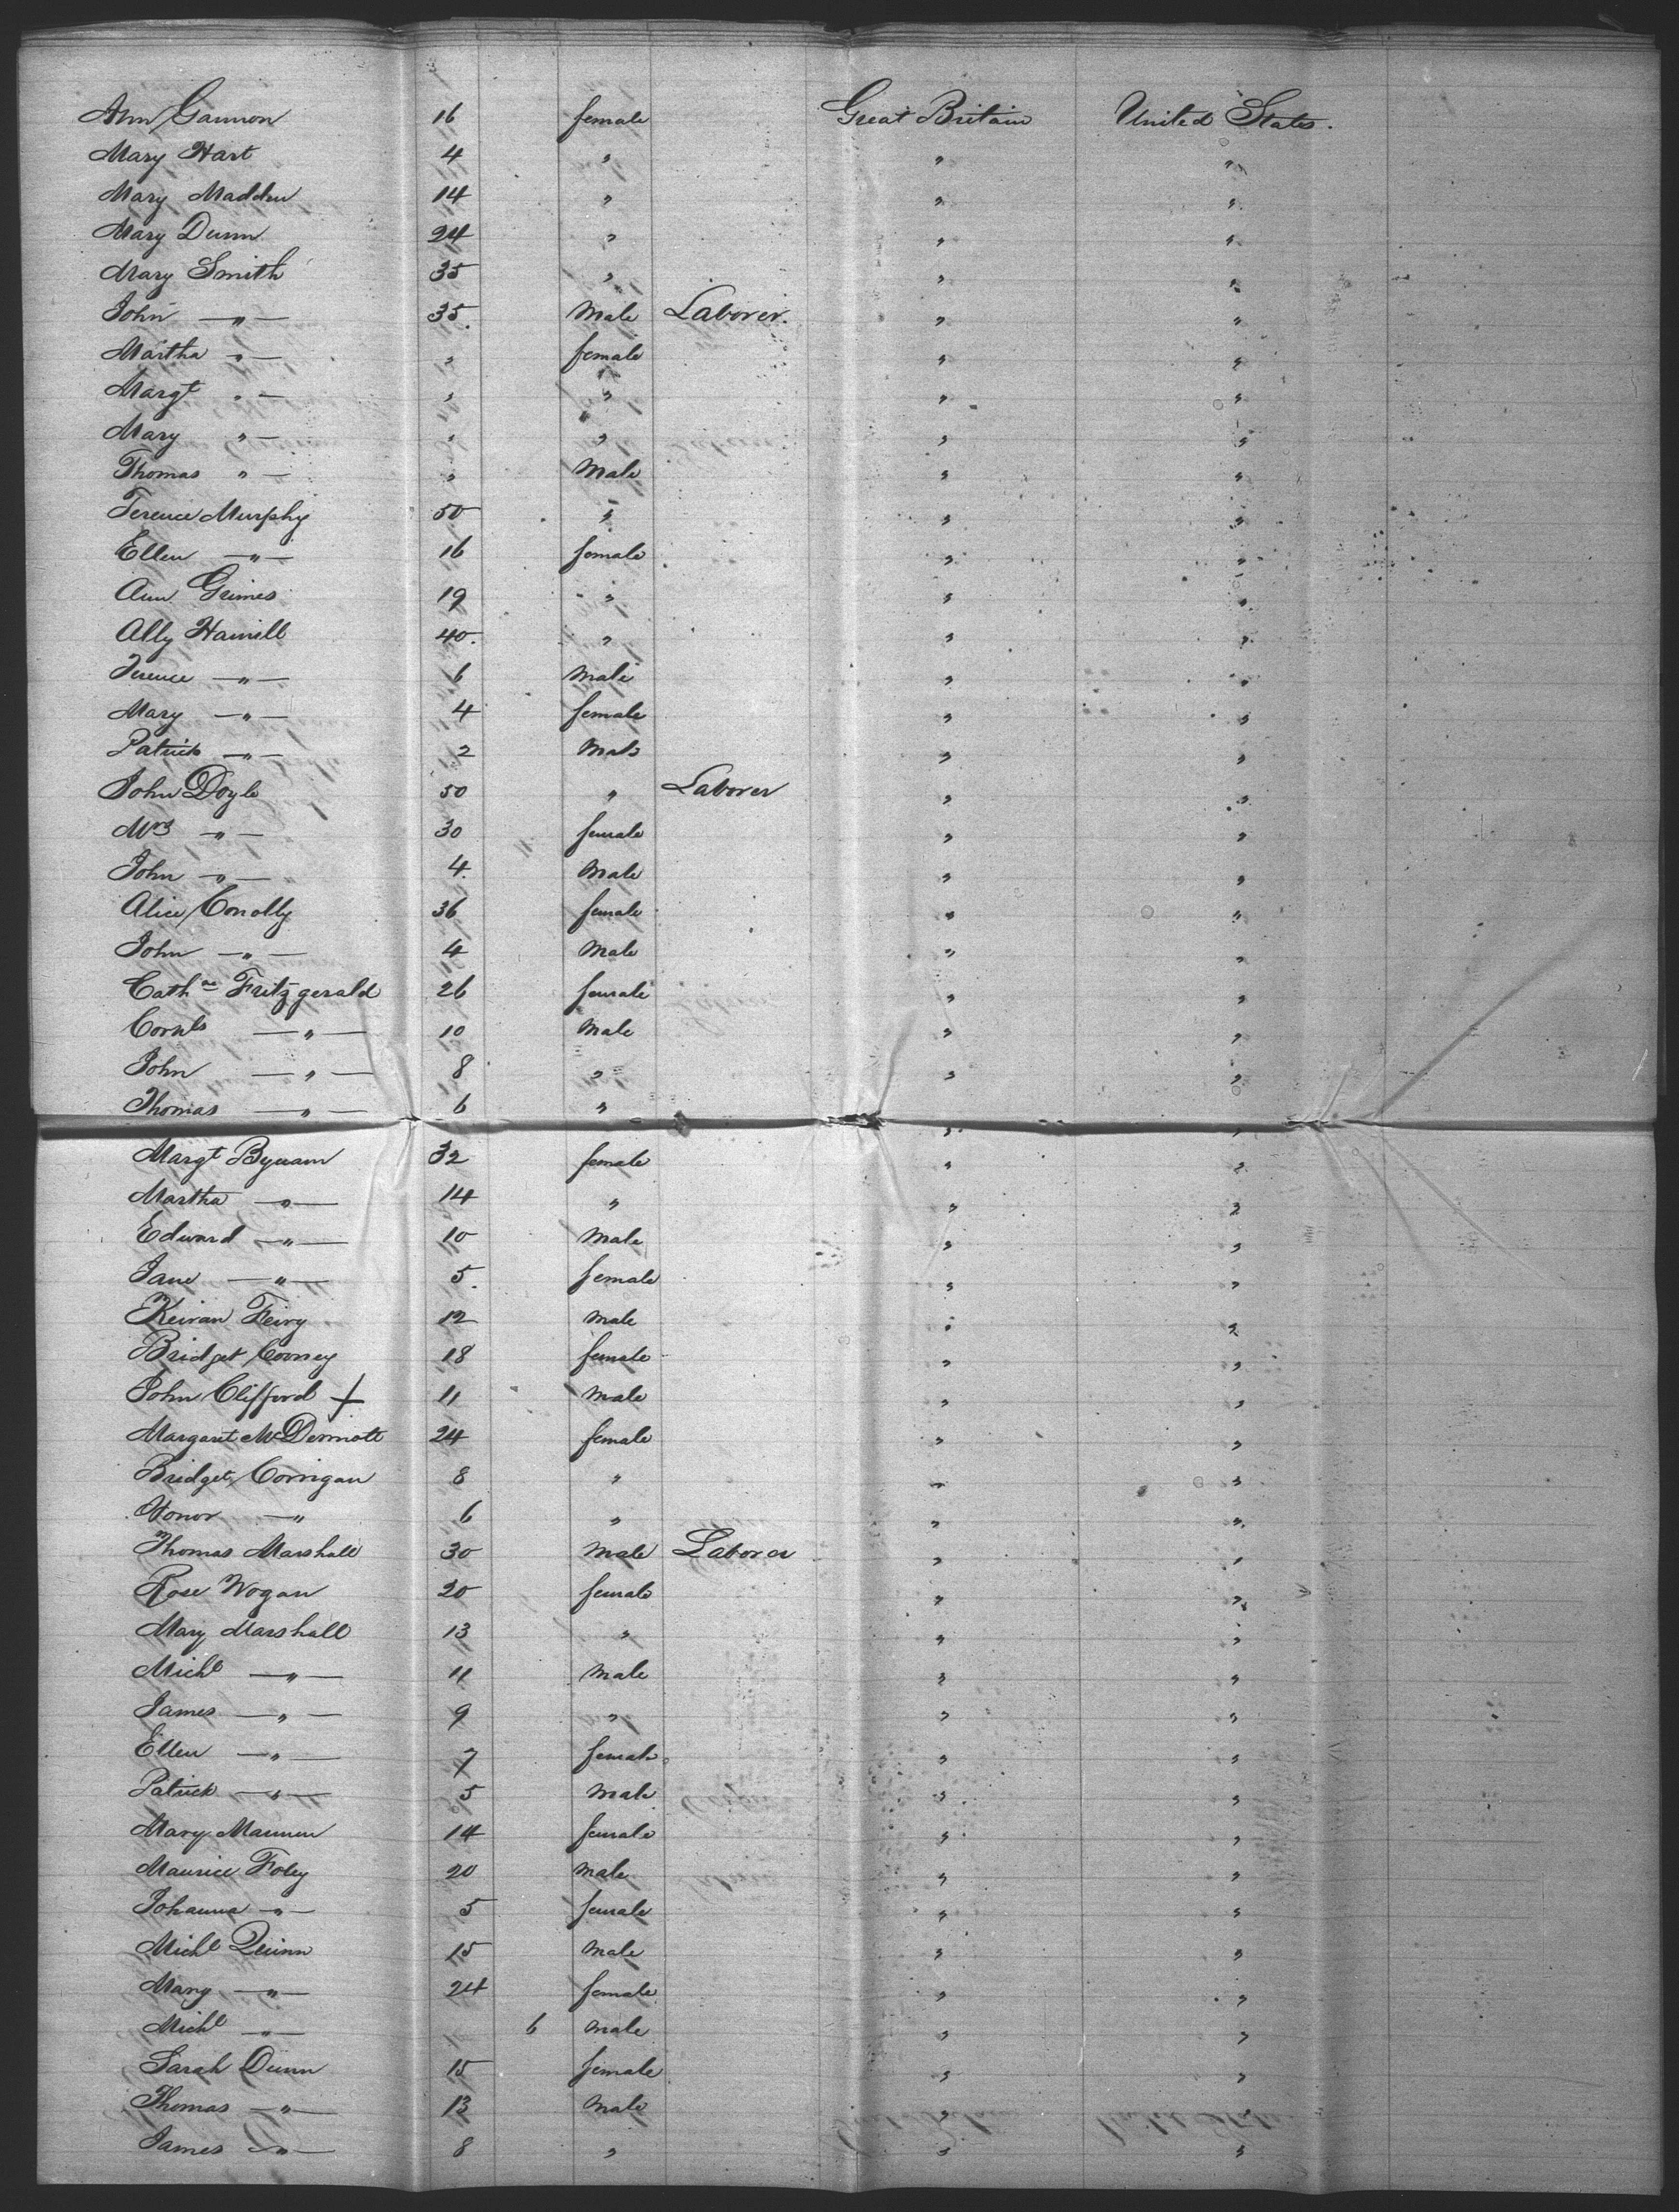 Ann Gannon 16 female Great Britain United States.
Mary Hart 4 " " "
Mary Madden 14 " " "
Mary Dunn 24 " " "
Mary Smith 35 " " "
John —"— 35. Male Laborer. " "
Martha "— " female " "
Margt "— " " " "
Mary "— " " " "
Thomas "— " Male " "
Terence Murphy 50 " " "
Ellen —"— 16 female " "
Ann Grimes 19 " " "
Ally Hamill 40. " " "
Terence —"— 6 Male " "
Mary —"— 4 female " "
Patrick —"— 2 Male " "
John Doyle 50 " Laborer " "
Mrs —"— 30 female " "
John —"— 4. Male " "
Alice Conolly 36 female " "
John —"— 4 Male " "
Cathne Fritzgerald 26 female " "
Cornls —"— 10 Male " "
John —"— 8 " " "
Thomas —"— 6 " " "
Margt Bynam 32 female " "
Martha —"— 14 " " "
Edward —"— 10 Male " "
Jane —"— 5. female " "
Keiran 12 Male " "
Bridget Cooney 18 female " "
John Clifford + 11 Male " "
Margaret McDermott 24 female " "
Bridget Corrigan 8 " " "
Honor —" 6 " " "
Thomas Marshall 30 Male Laborer " "
Rose Wogan 20 female " "
Mary Marshall 13 " " "
Michl —"— 11 Male " "
James —"— 9 " " "
Ellen —"— 7 female " "
Patrick —"— 5 Male " "
Mary 14 female " "
Maurice Foley 20 Male " "
Johanna —"— 5 female " "
Michl Quinn 15 Male " "
Mary —"— 24 female " "
Michl —"— 6 Male " "
Sarah Dunn 15 female " "
Thomas —"— 13 Male " "
James —"— 8 " " "